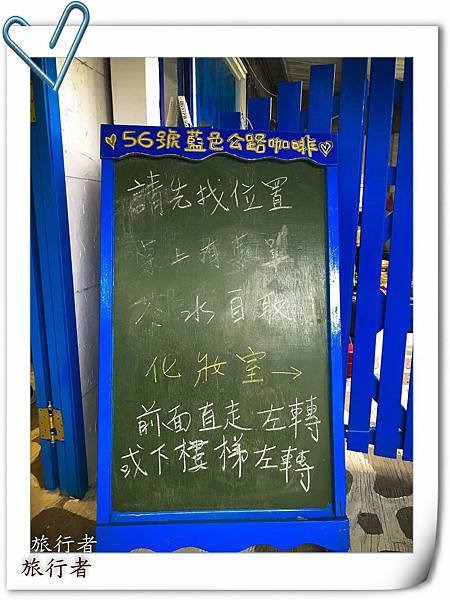 56號藍色公路咖啡
請先找位置
桌上有菜單
茶水自取
化妝室→
前面直走左轉
或下樓梯左轉
旅行者
旅行者